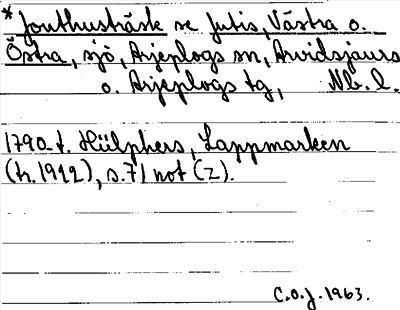 * Jouthusträsk se Jutis, Västra o.
Östra, sjö, Arjeplogs sn, Arvidsjaurs
o. Arjeplogs tg, Nb. l.
1790-t. Hülphers, Lappmarken
(tr. 1922), s. 71 not (z).
C.O.J. 1963.